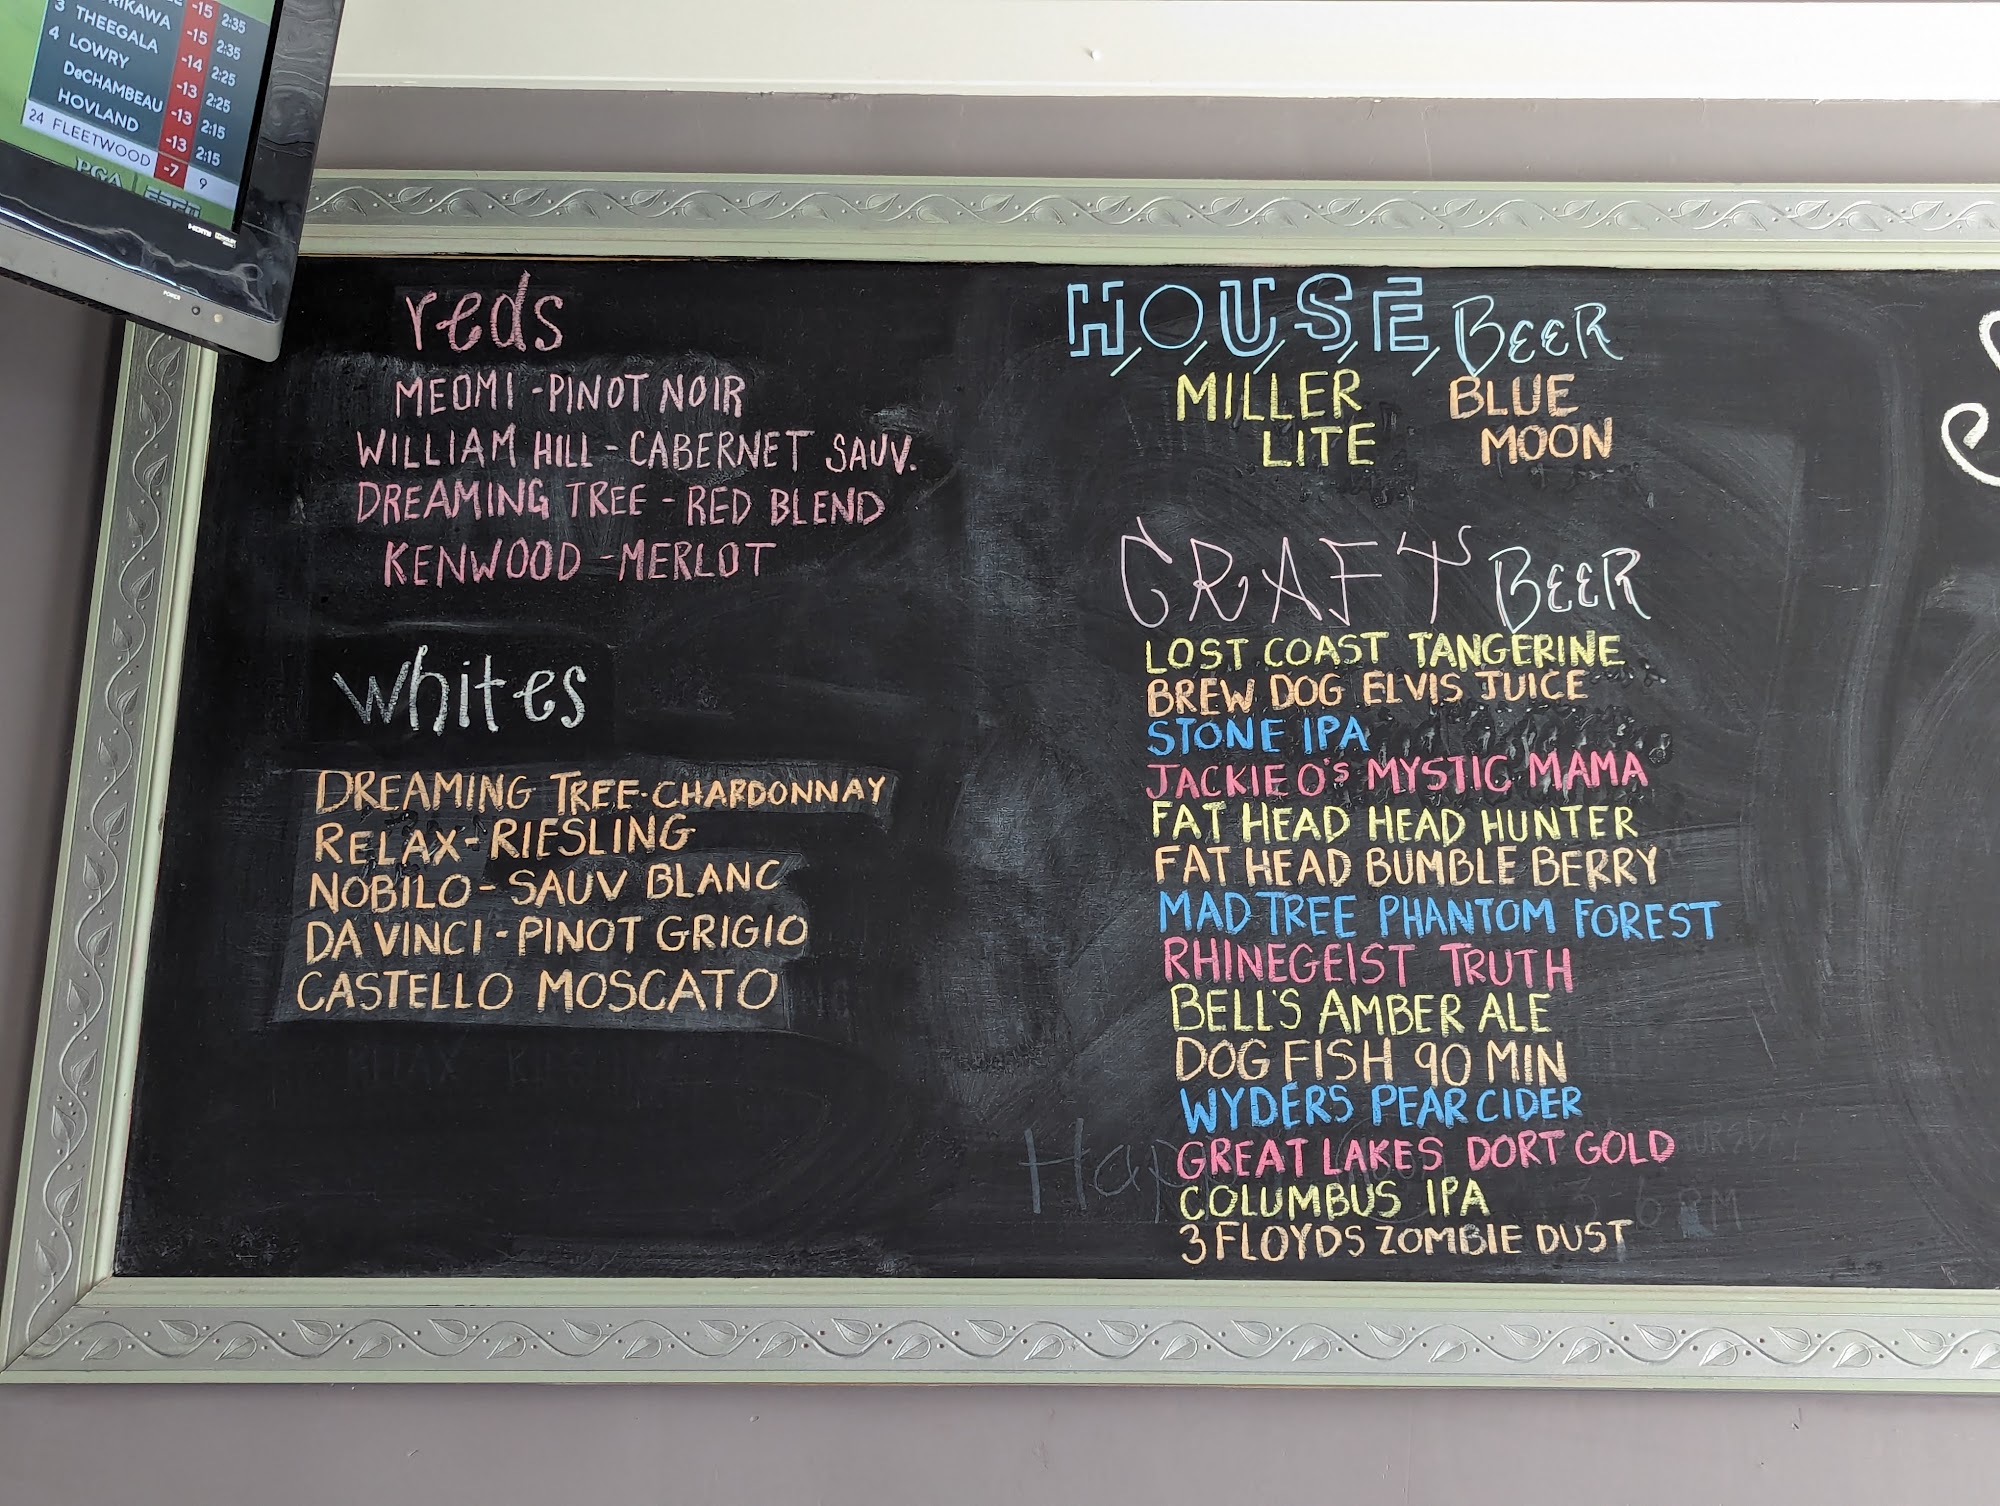 -15 2:35
3 THEEGALA -15 2:35
4 LOWRY -14 2:25
DeCHAMBEAU -13 2:25
HOVLAND -13 2:15
-13 2:15
24 FLEETWOOD -7 9
PGA ESPN
HDMI
POWER
reds
MEOMI - PINOT NOIR
WILLIAM HILL - CABERNET SAUV.
DREAMING TREE - RED BLEND
KENWOOD - MERLOT
whites
DREAMING TREE - CHARDONNAY
RELAX - RIESLING
NOBILO - SAUV BLANC
DA VINCI - PINOT GRIGIO
CASTELLO MOSCATO
HOUSE BEER
MILLER LITE
BLUE MOON
CRAFT BEER
LOST COAST TANGERINE
BREW DOG ELVIS JUICE
STONE IPA
JACKIE O'S MYSTIC MAMA
FAT HEAD HEAD HUNTER
FAT HEAD BUMBLE BERRY
MADTREE PHANTOM FOREST
RHINEGEIST TRUTH
BELL'S AMBER ALE
DOG FISH 90 MIN
WYDERS PEAR CIDER
GREAT LAKES DORT GOLD
COLUMBUS IPA
3 FLOYDS ZOMBIE DUST
3-6 PM